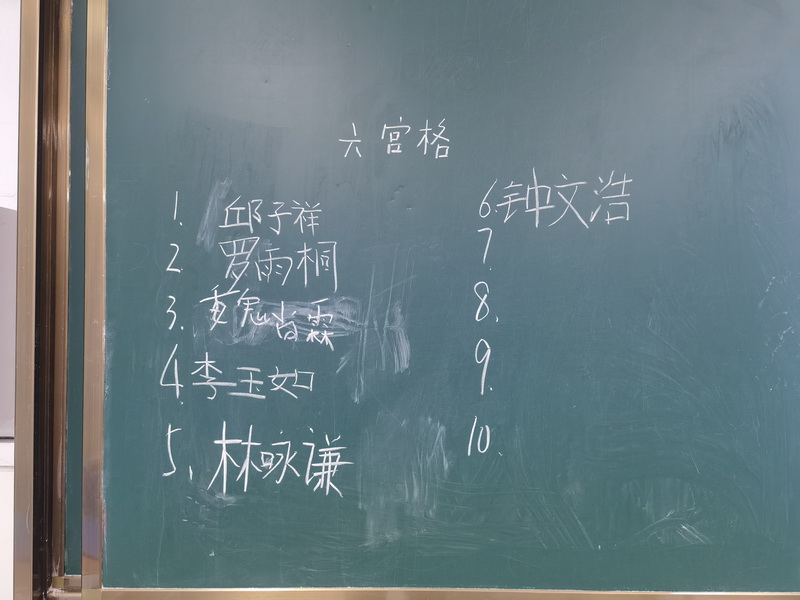 六宫格
1. 邱子祥
2. 罗雨桐
3. 魏尚霖
4. 李玉如
5、林咏谦
6. 钟文浩
7.
8.
9.
10.